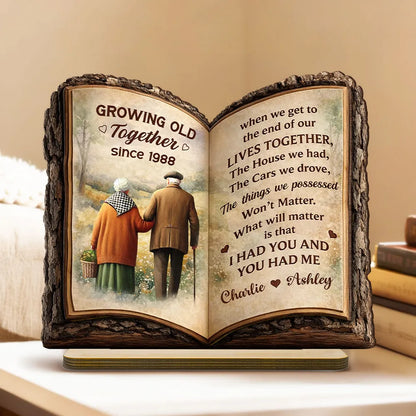 GROWING OLD
Together
since 1988
when we get to
the end of our
LIVES TOGETHER,
The House we had,
The Cars we drove,
The things we possessed
Won't Matter.
What will matter
is that
I HAD YOU AND
YOU HAD ME
Charlie Ashley